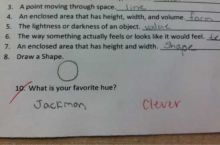 3. A point moving through space. line
4. An enclosed area that has height, width, and volume. form
5. The lightness or darkness of an object. value
6. The way something actually feels or looks like it would feel. te
7. An enclosed area that has height and width. Shape
8. Draw a Shape.
10. What is your favorite hue?
Jackman Clever